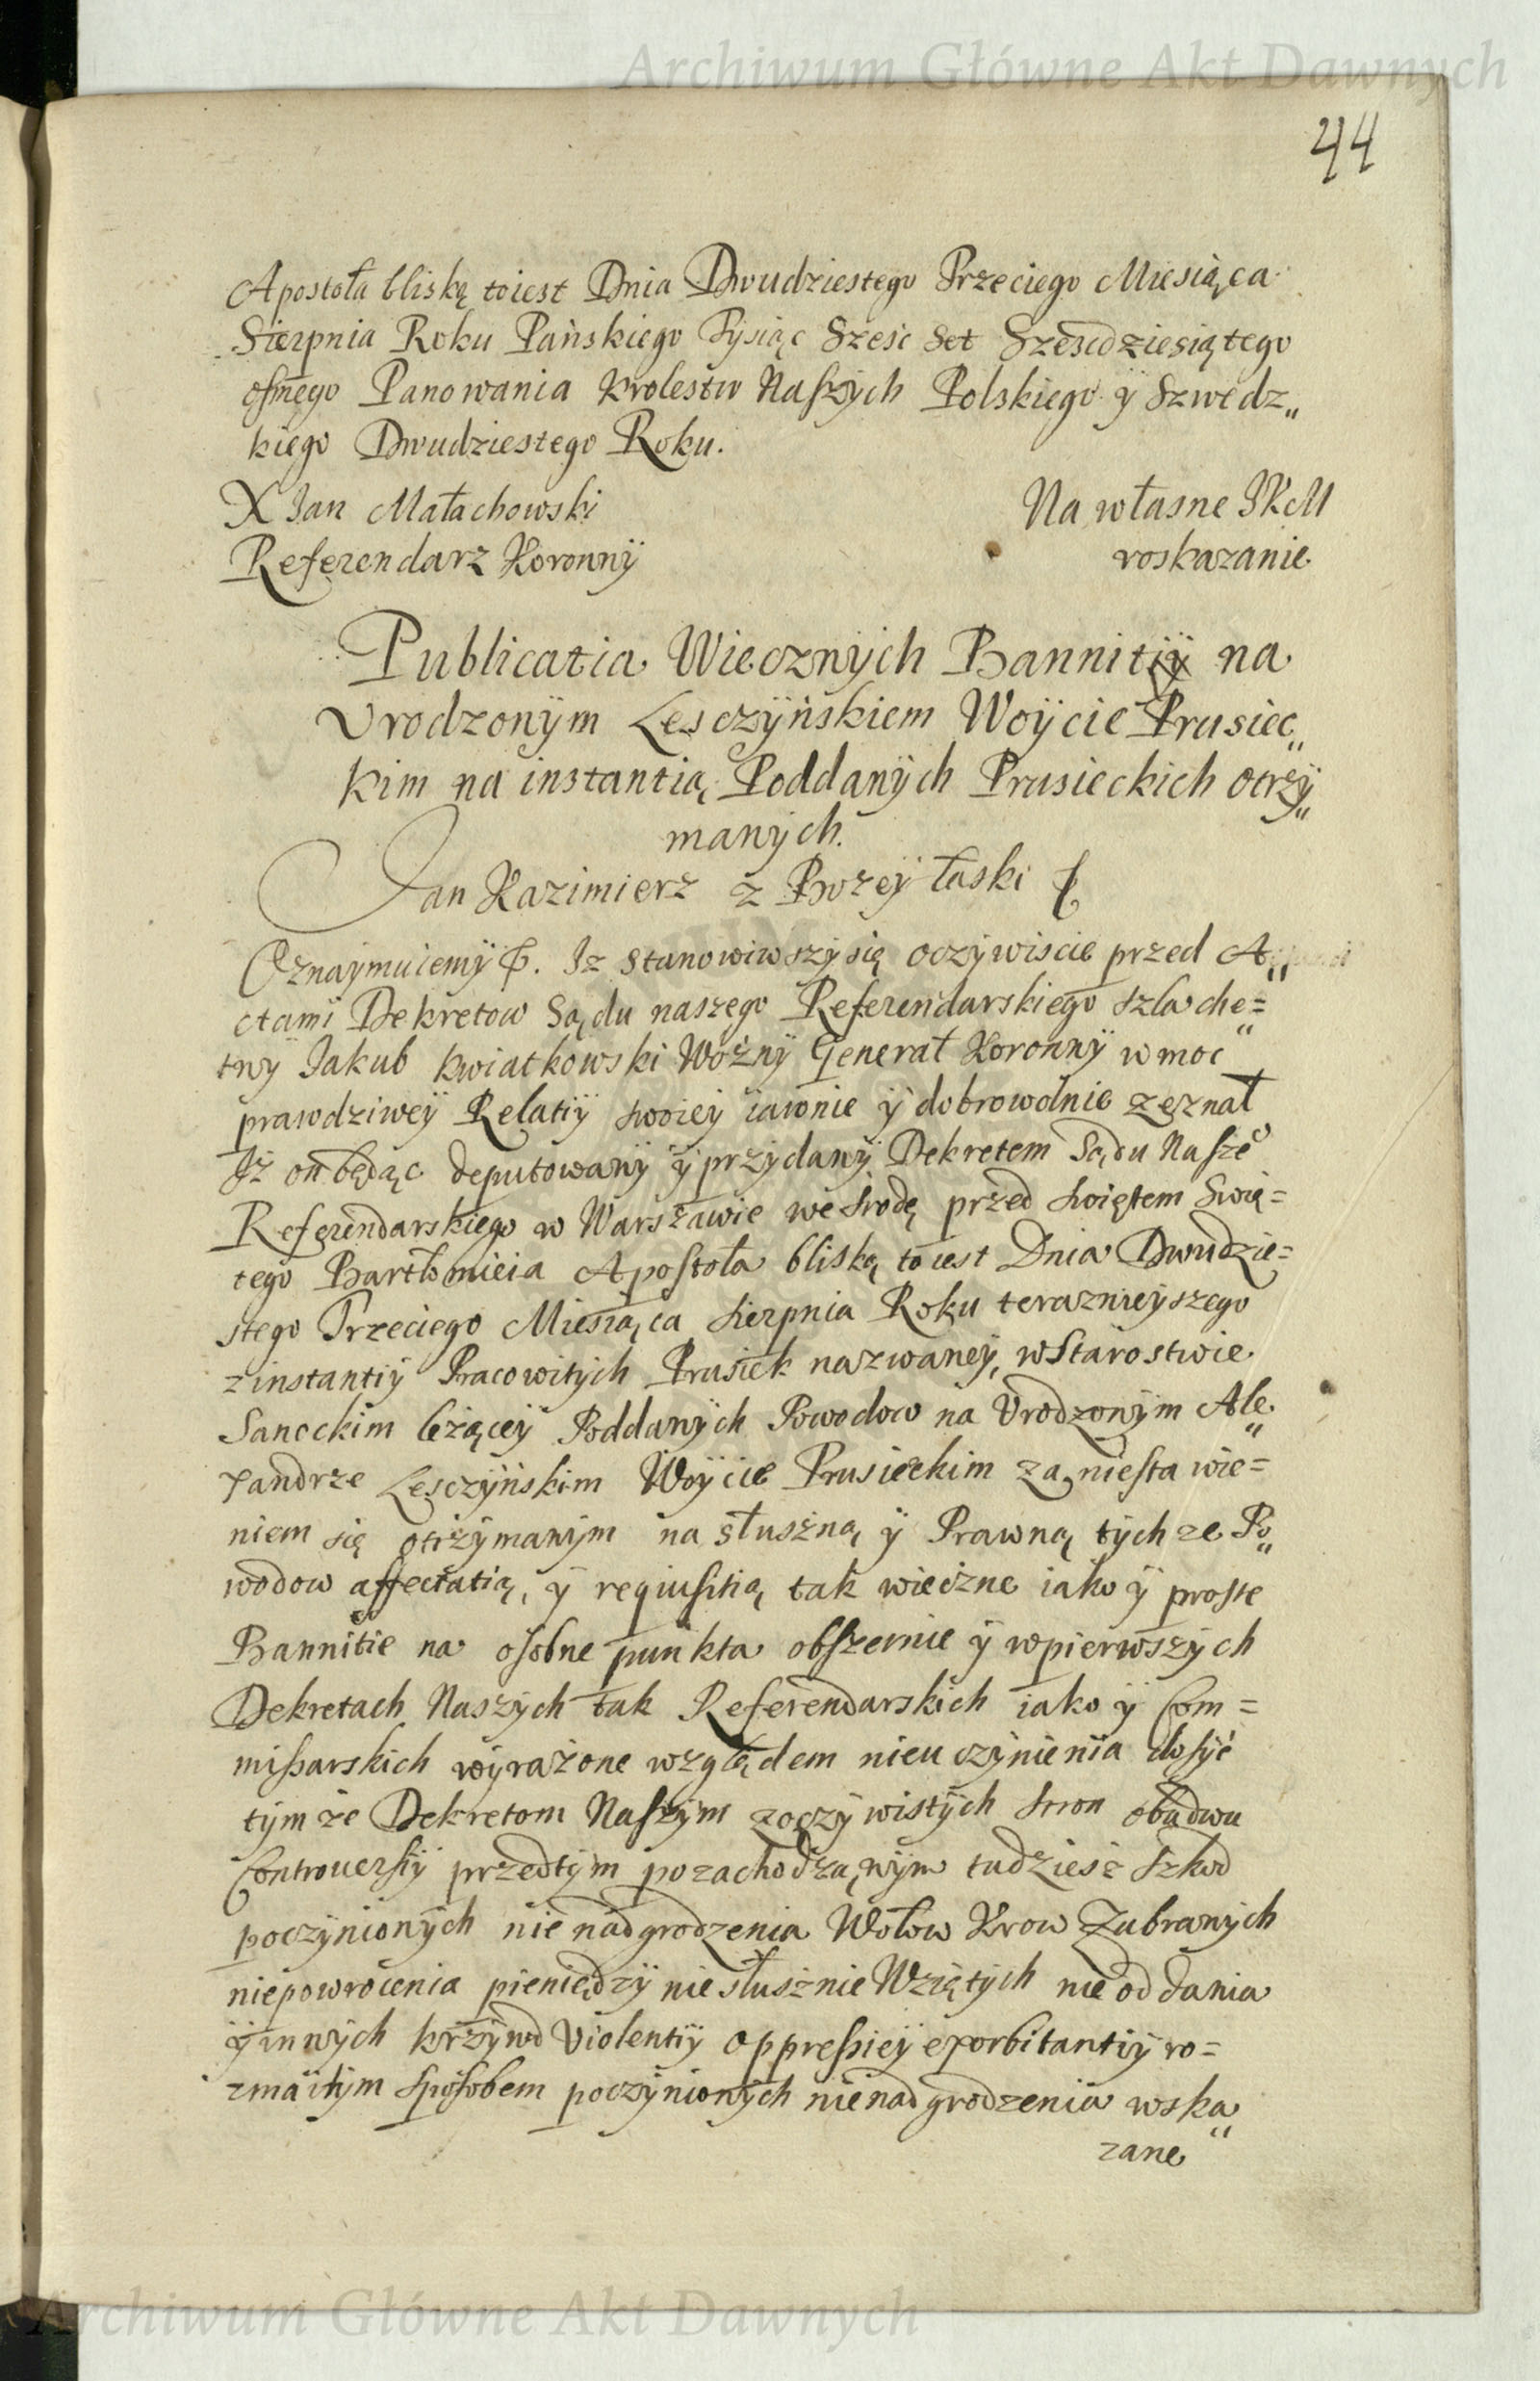 Archiwum Główne Akt Dawnych
44
Apostoła bliską toiest Dnia Dwudziestego Trzeciego Miesiąca
Sierpnia Roku Pańskiego Tysiąc Sześc Set Szesdziesiątego
osmego Panowania Krolestw Naszych Polskiego ÿ Szwedz„
kiego Dwudziestego Roku.
X Jan Małachowski
Na własne JKM
Referendarz Koronnÿ
roskazanie
Publicatia Wiecznÿch Bannitiÿ na
Vrodzonÿm Lesczÿńskiem Woÿcie Prusiec„
kim na instantią Poddanÿch Prusieckich otrzÿ„
manÿch.
Jan Kazimierz z Bozeÿ łaski
Oznaÿmuiemÿ. Iz stanowiwszÿ się oczÿwiscie przed A„
ctami Dekretow Sądu naszego Referendarskiego szlache=
tnÿ Jakub Kwiatkowski Woźnÿ Generał Koronnÿ w moc
prawdziweÿ Relatiÿ swoieÿ iawnie ÿ dobrowolnie zeznał
Iż on będąc deputowanÿ ÿ przÿdanÿ Dekretem Sądu Nasze°
Referendarskiego w Warszawie we srodę przed swiętem Swię=
tego Bartłomieia Apostoła bliską to iest Dnia Dwudzie=
stego Trzeciego Miesiąca sierpnia Roku teraznieÿszego
z instantiÿ Pracowitÿch Prusiek nazwaneÿ, w Starostwie
Sanockim leżąceÿ Poddanÿch Powodow na Vrodzonÿm Ale„
xandrze Lesczÿńskim Woÿcie Prusieckim za niestawie=
niem się otrzÿmanÿm na słuszną ÿ Prawną tÿchze Po„
wodow affectatią, ÿ requisitią tak wieczne iako ÿ proste
Bannitie na osobne punkta obszernie ÿ w pierwszÿch
Dekretach Naszÿch tak Referendarskich iako ÿ Com=
missarskich wÿrażone względem nieuczÿnienia dosÿć
tÿmże Dekretom Naszÿm z oczÿwistÿch stron obudwu
Controuersiÿ przedtÿm pozachodząnÿm tudziesz szkod
poczÿnionÿch nie nadgrodzenia Wołow Krow Zubranÿch
niepowrocenia pieniędzÿ niesłusznie Wziętÿch nie oddania
ÿ innÿch krzÿwd Violentiÿ oppressieÿ exorbitantiÿ ro=
zmaitÿm sposobem poczÿnionÿch nienadgrodzenia wska„
zane
Archiwum Główne Akt Dawnych